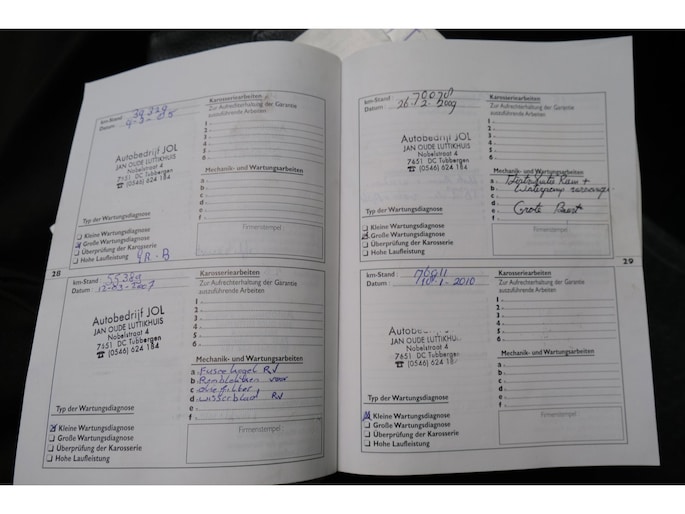 km-Stand : 39329
Datum : 9-3-05
Karosseriearbeiten
Zur Aufrechterhaltung der Garantie
auszuführende Arbeiten
1
2
3
4
5
6
Autobedrijf JOL
JAN OUDE LUTTIKHUIS
Nobelstraat 4
7651 DC Tubbergen
☎ (0546) 624 184
Mechanik- und Wartungsarbeiten
a
b
c
d
e
f
Typ der Wartungsdiagnose
Kleine Wartungsdiagnose
Große Wartungsdiagnose
Überprüfung der Karosserie
Hohe Laufleistung
Firmenstempel
28
km-Stand : 55389
Datum : 12-03-2007
Karosseriearbeiten
Zur Aufrechterhaltung der Garantie
auszuführende Arbeiten
1
2
3
4
5
6
Autobedrijf JOL
JAN OUDE LUTTIKHUIS
Nobelstraat 4
7651 DC Tubbergen
☎ (0546) 624 184
Mechanik- und Wartungsarbeiten
a Fuseekogel RV
b Remblokken voor
c oliefilter,
d wisserblad RV
e
f
Typ der Wartungsdiagnose
Kleine Wartungsdiagnose
Große Wartungsdiagnose
Überprüfung der Karosserie
Hohe Laufleistung
Firmenstempel :
km-Stand :
Datum : 26-2-2009
Karosseriearbeiten
Zur Aufrechterhaltung der Garantie
auszuführende Arbeiten
1
2
3
4
5
6
Autobedrijf JOL
JAN OUDE LUTTIKHUIS
Nobelstraat 4
7651 DC Tubbergen
☎ (0546) 624 184
Mechanik- und Wartungsarbeiten
a Distributie Riem +
b Waterpomp
c
d
e Grote Beurt
f
Typ der Wartungsdiagnose
Kleine Wartungsdiagnose
Große Wartungsdiagnose
Überprüfung der Karosserie
Hohe Laufleistung
Firmenstempel :
29
km-Stand :
Datum : 2010
Karosseriearbeiten
Zur Aufrechterhaltung der Garantie
auszuführende Arbeiten
1
2
3
4
5
6
JAN OUDE
Nobelstraat 4
7651 DC Tubbergen
☎ (0546) 624 184
Mechanik- und Wartungsarbeiten
a
b
c
d
e
f
Typ der Wartungsdiagnose
Kleine Wartungsdiagnose
Große Wartungsdiagnose
Überprüfung der Karosserie
Hohe Laufleistung
Firmenstempel :